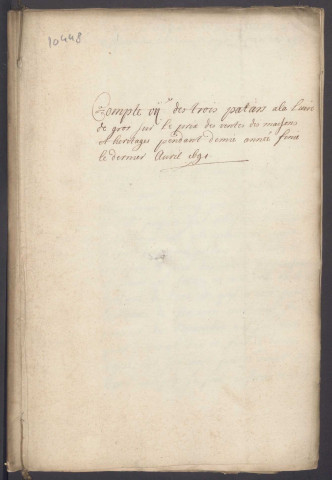 10448
Compte vij.e des trois patars a la Livre
de gros sur le prix des ventes des maisons
et heritages pendant demie année finie
le dernier Avril 1691